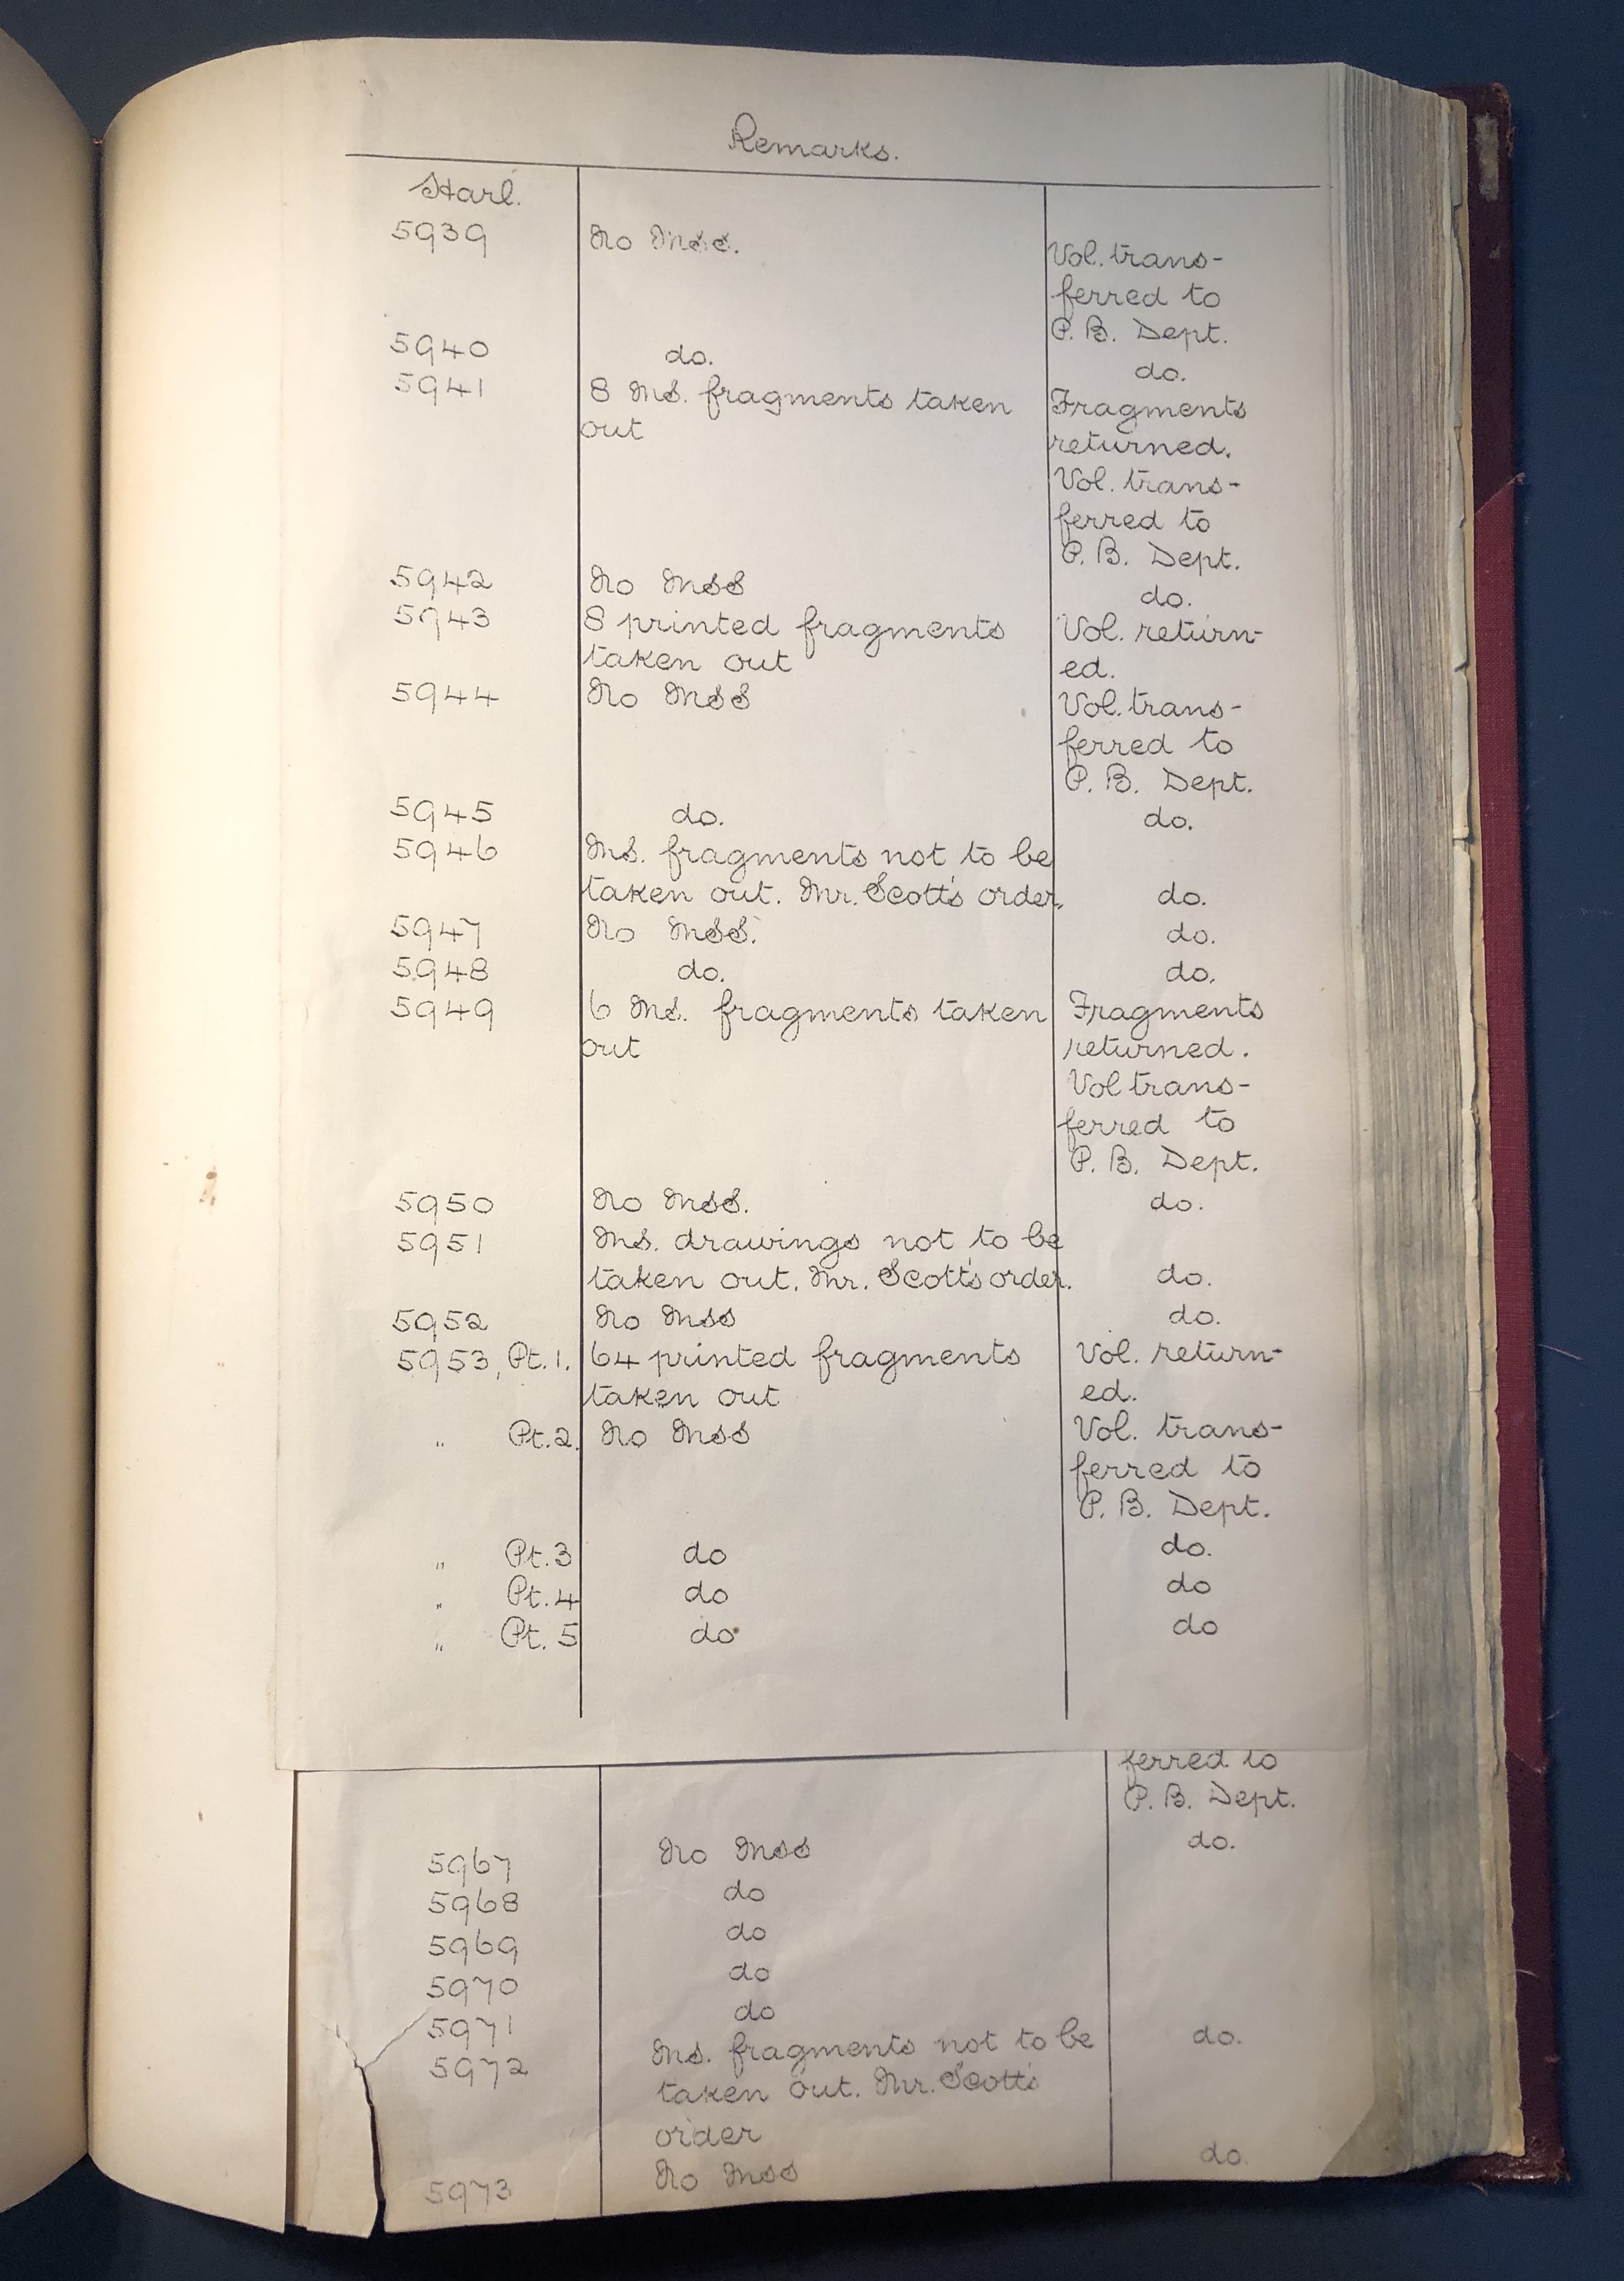 Remarks.
Harl.
5939 No MSS. Vol. trans-
ferred to
P. B. Dept.
5940 do. do.
5941 8 MS. fragments taken Fragments
out returned.
Vol. trans-
ferred to
P. B. Dept.
5942 No MSS do.
5943 8 printed fragments Vol. return-
taken out ed.
5944 No MSS Vol. trans-
ferred to
P. B. Dept.
5945 do. do.
5946 MS. fragments not to be
taken out. Mr. Scott's order. do.
5947 No MSS. do.
5948 do. do.
5949 6 MS. fragments taken Fragments
out returned.
Vol trans-
ferred to
P. B. Dept.
5950 No MSS. do.
5951 MS. drawings not to be
taken out. Mr. Scott's order. do.
5952 No MSS do.
5953, Pt. 1. 64 printed fragments Vol. return-
taken out ed.
„ Pt. 2. No MSS Vol. trans-
ferred to
P. B. Dept.
„ Pt. 3 do do.
„ Pt. 4 do do
„ Pt. 5 do do
ferred to
P. B. Dept.
5967 No MSS do.
5968 do
5969 do
5970 do
5971 do
5972 MS. fragments not to be do.
taken out. Mr. Scott's
order
5973 No MSS do.